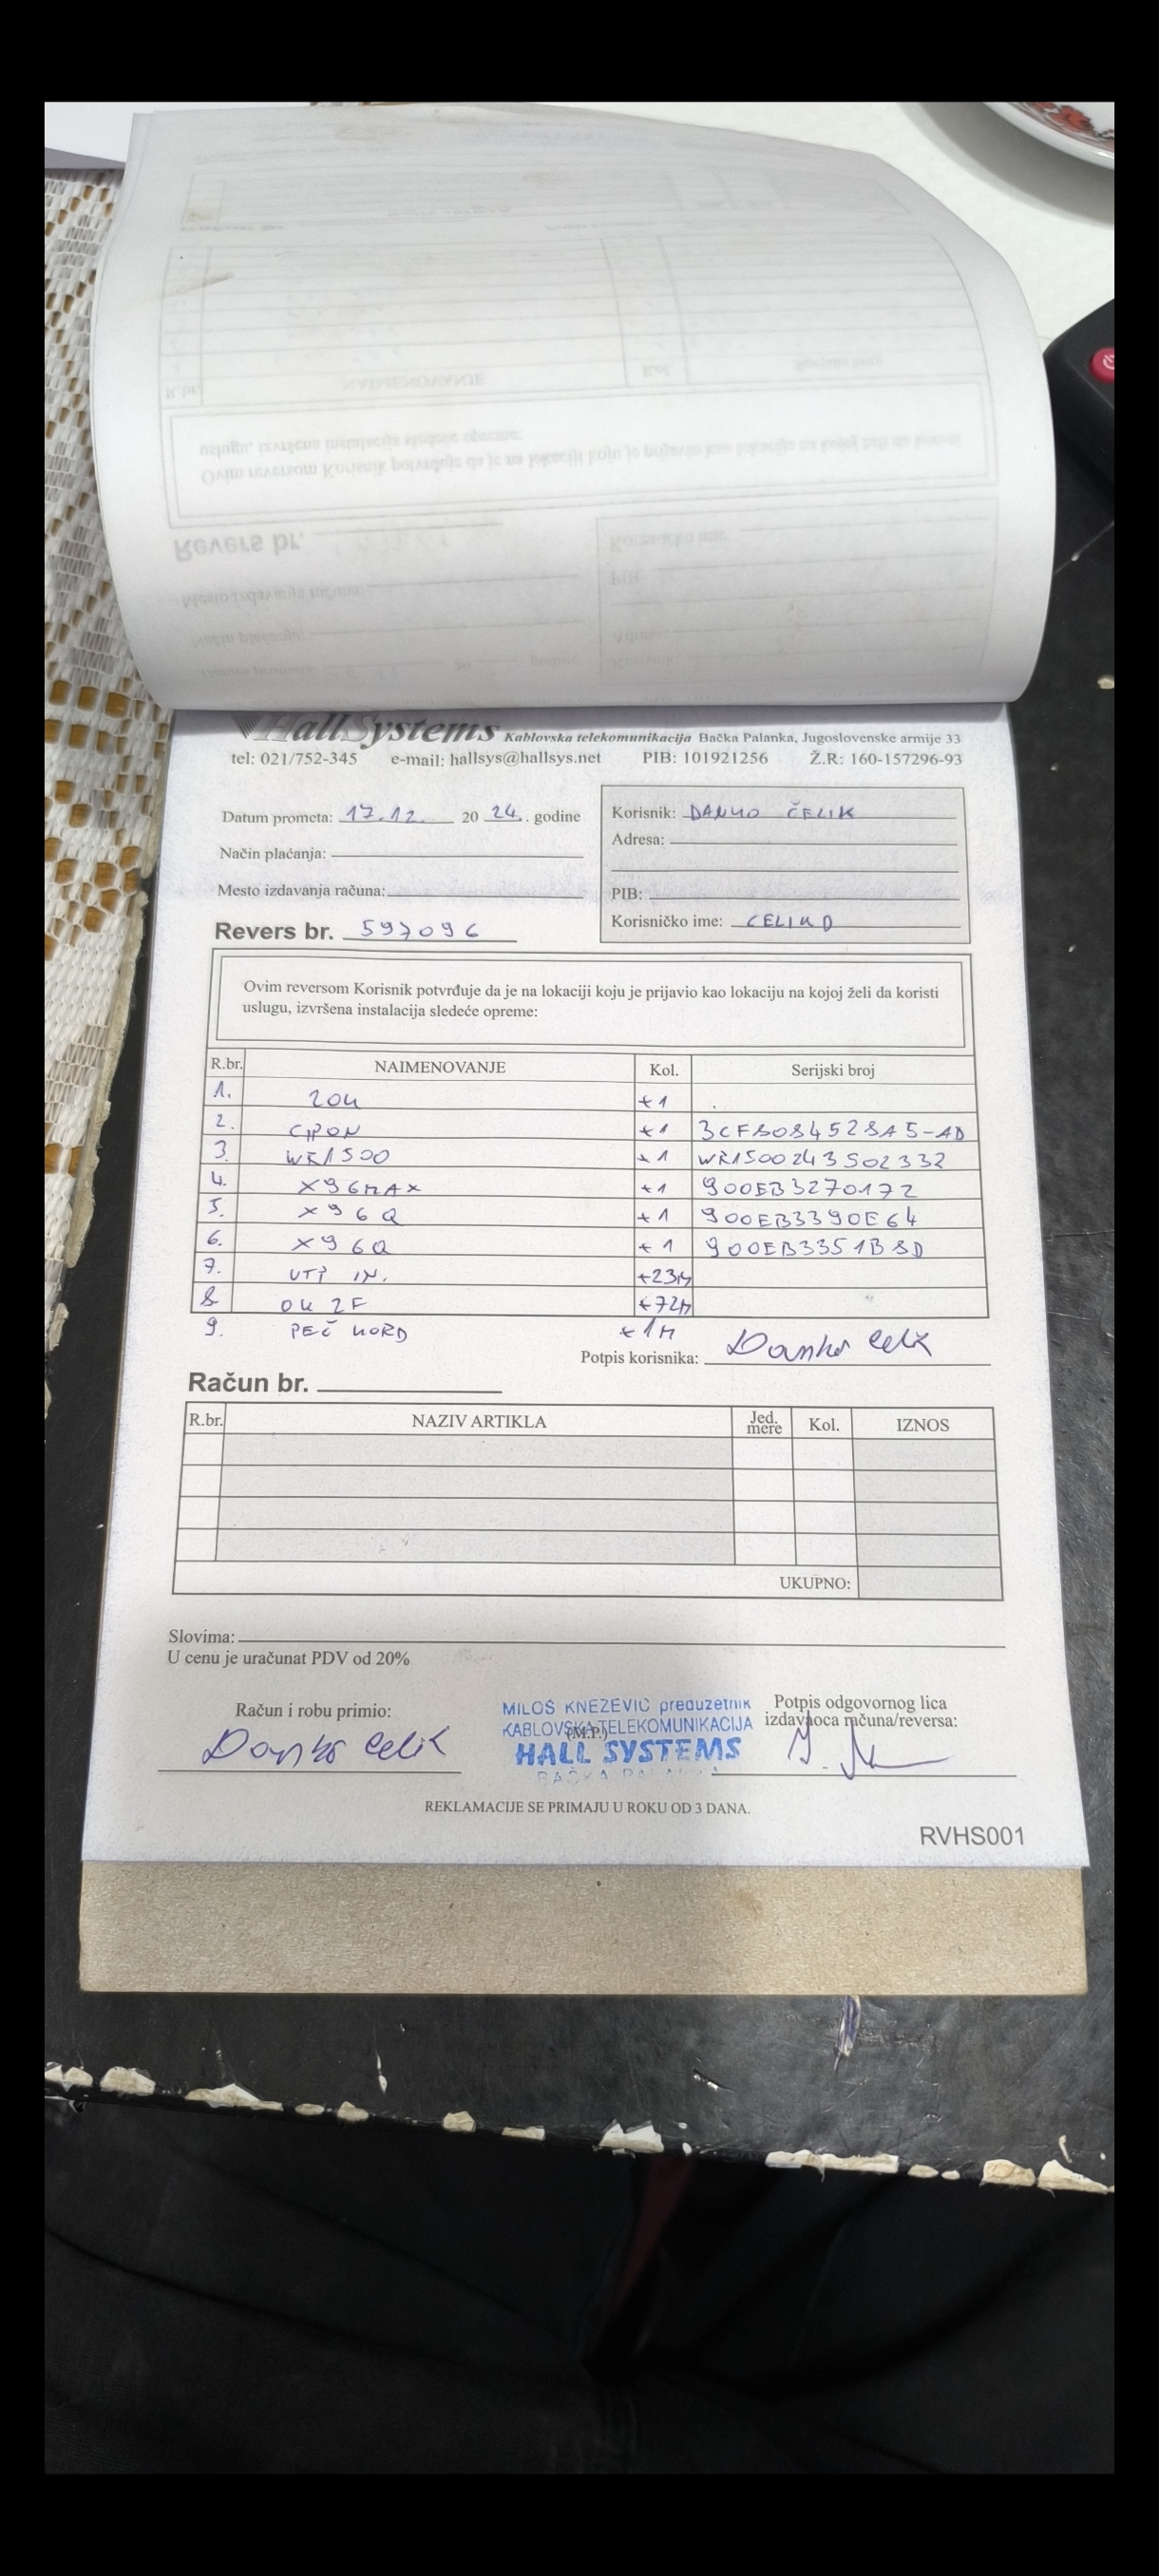 HallSystems Kablovska telekomunikacija Bačka Palanka, Jugoslovenske armije 33
tel: 021/752-345 e-mail: hallsys@hallsys.net PIB: 101921256 Ž.R: 160-157296-93
Datum prometa: 17.12. 20 24. godine
Način plaćanja:
Mesto izdavanja računa:
Revers br. 597096
Korisnik: DANKO ČELIK
Adresa:
PIB:
Korisničko ime: CELIKD
Ovim reversom Korisnik potvrđuje da je na lokaciji koju je prijavio kao lokaciju na kojoj želi da koristi
uslugu, izvršena instalacija sledeće opreme:
R.br. NAIMENOVANJE Kol. Serijski broj
1. ZOK +1
2. GPON +1 3CFB084528A5-AD
3. WR1500 +1 WR1500243502332
4. X96MAX +1 900EB3270172
5. X96Q +1 900EB3390E64
6. X96Q +1 900EB3351B8D
7. UTP IN. +23M
8. OK 2F +72M
9. PEČ KORD +1M
Potpis korisnika: Danko Celik
Račun br.
R.br. NAZIV ARTIKLA Jed. mere Kol. IZNOS
UKUPNO:
Slovima:
U cenu je uračunat PDV od 20%
Račun i robu primio:
Danko Celik
MILOŠ KNEŽEVIĆ preduzetnik
KABLOVSKA TELEKOMUNIKACIJA
(M.P.)
HALL SYSTEMS
BAČKA PALANKA
Potpis odgovornog lica
izdavaoca računa/reversa:
REKLAMACIJE SE PRIMAJU U ROKU OD 3 DANA.
RVHS001